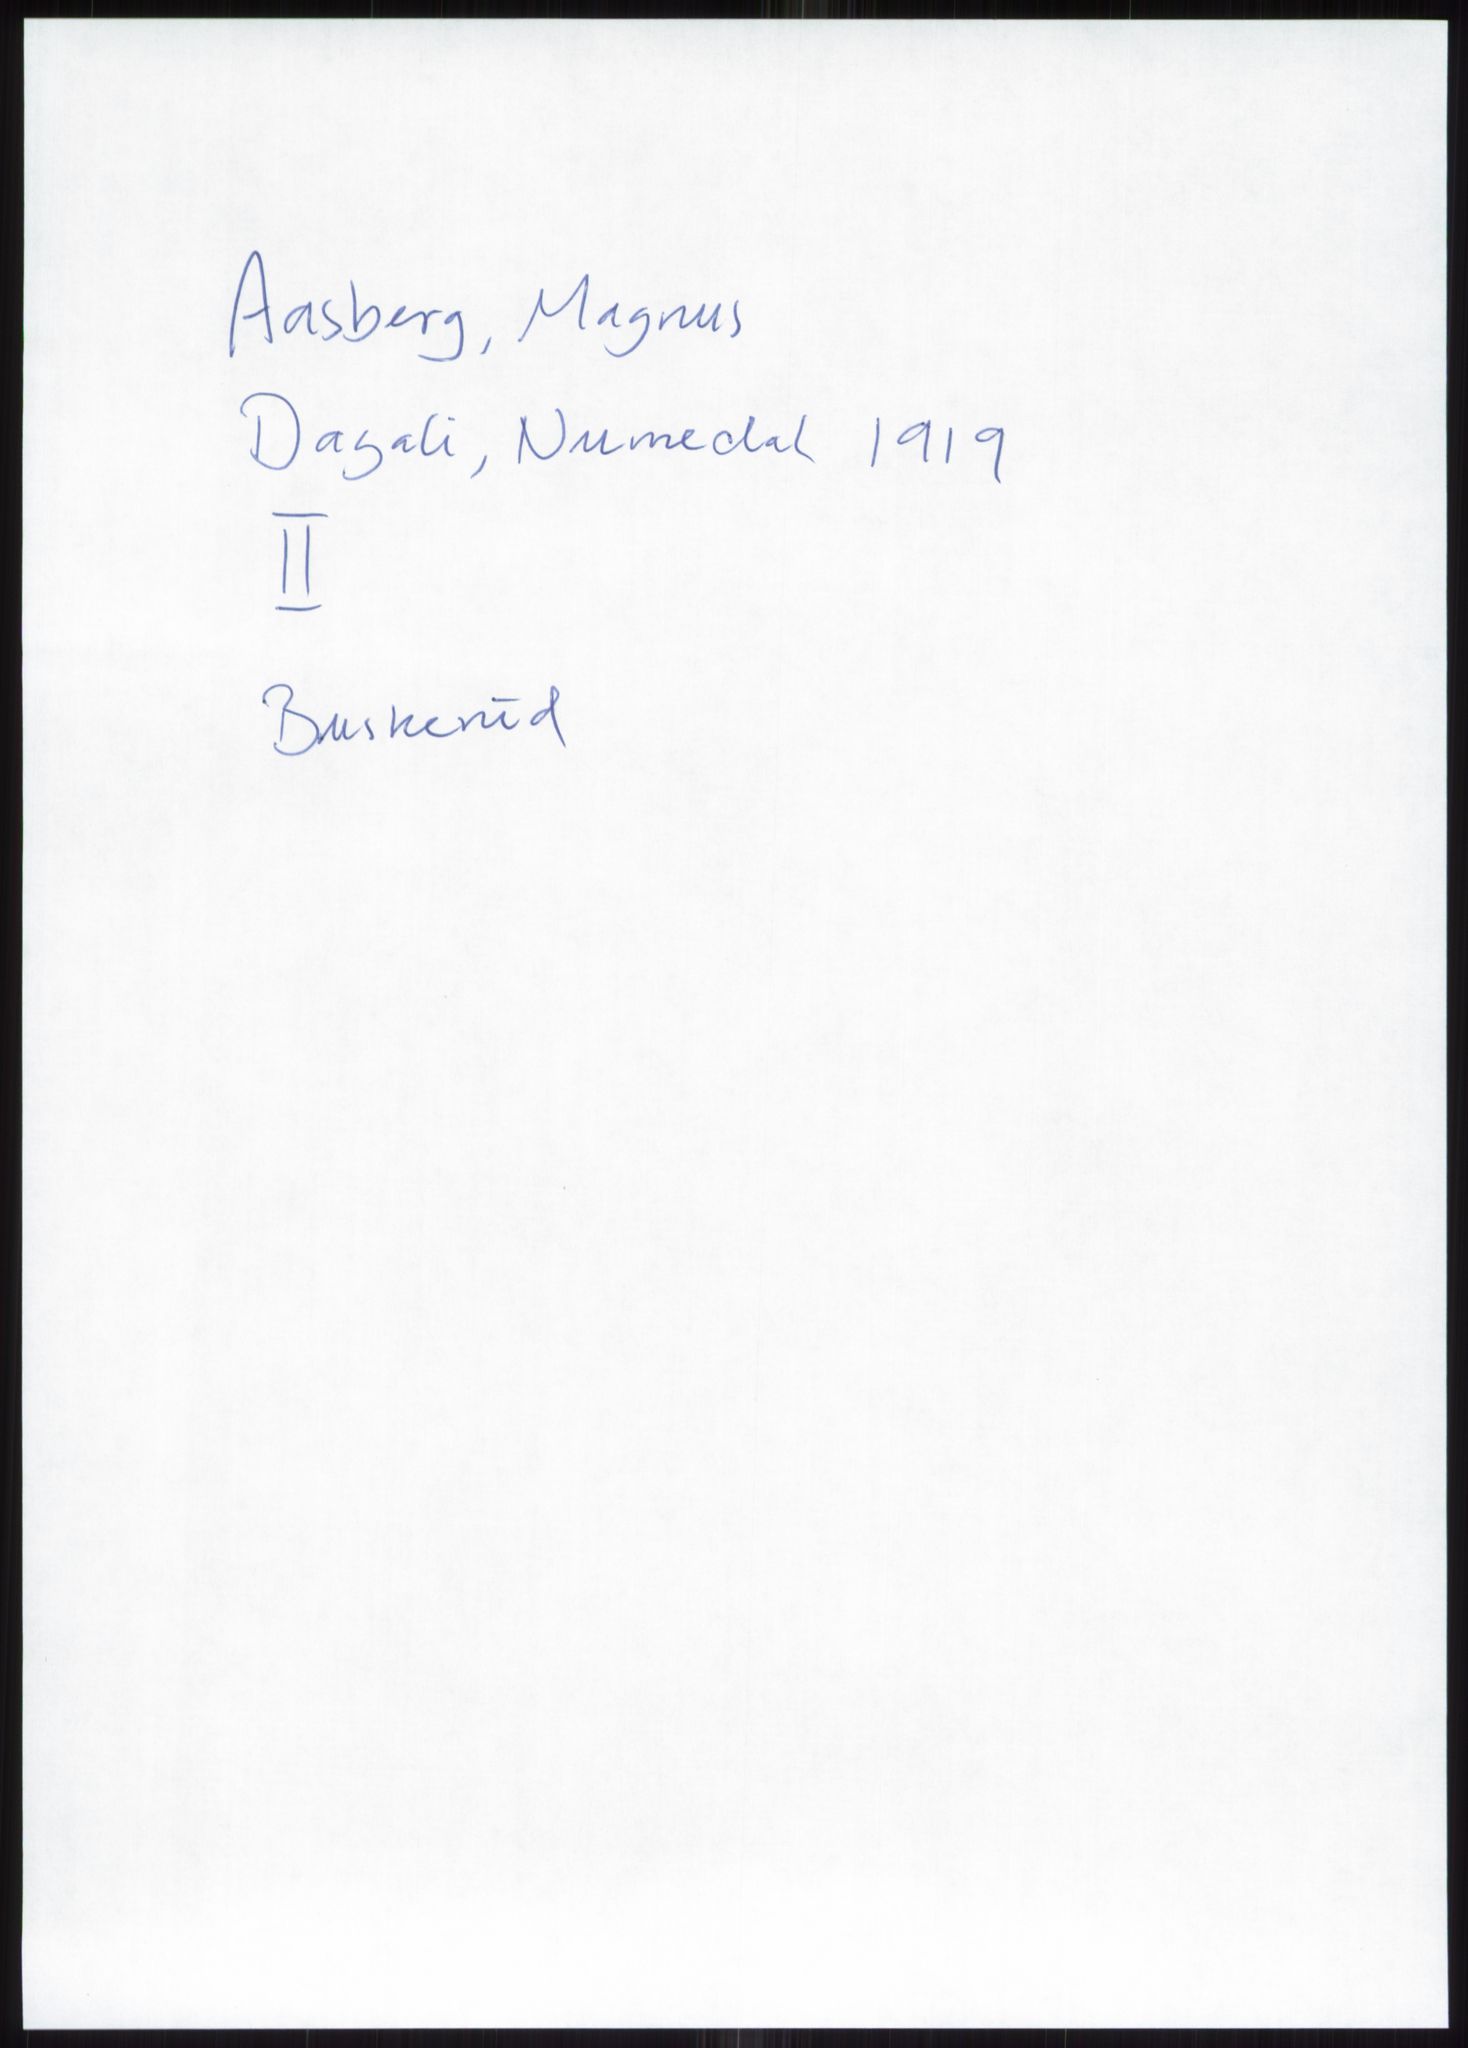 Aasberg, Magnus
Dagali, Numedal 1919
II
Buskerud